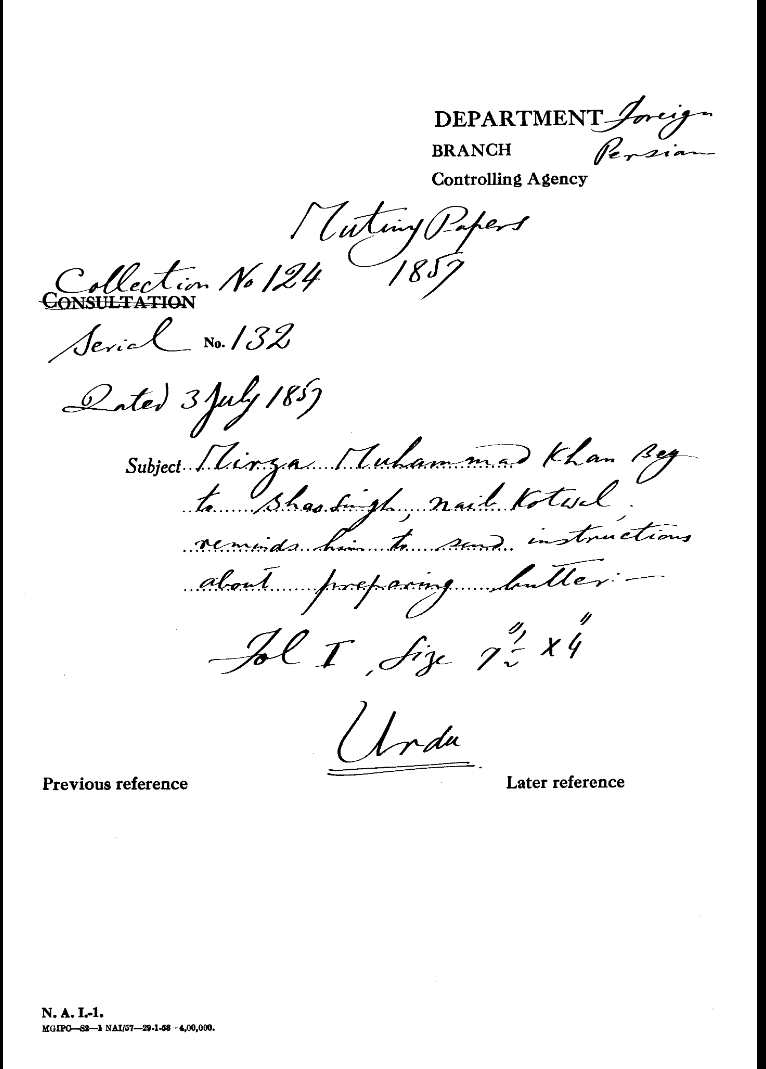 DEPARTMENT Foreign
BRANCH Persian
Controlling Agency
Mutiny Papers
1857
Collection No 124
CONSULTATION
Serial No. 132
Dated 3 July 1857
Subject Mirza Muhammad Khan Beg
to Bhao Singh, naib Kotwal,
reminds him to send instructions
about preparing butter:—
Fol I, Size 7½" x 4"
Urdu
Previous reference Later reference
N. A. I.-1.
MGIPC—S2—1 NAI/57—29-1-58—4,00,000.